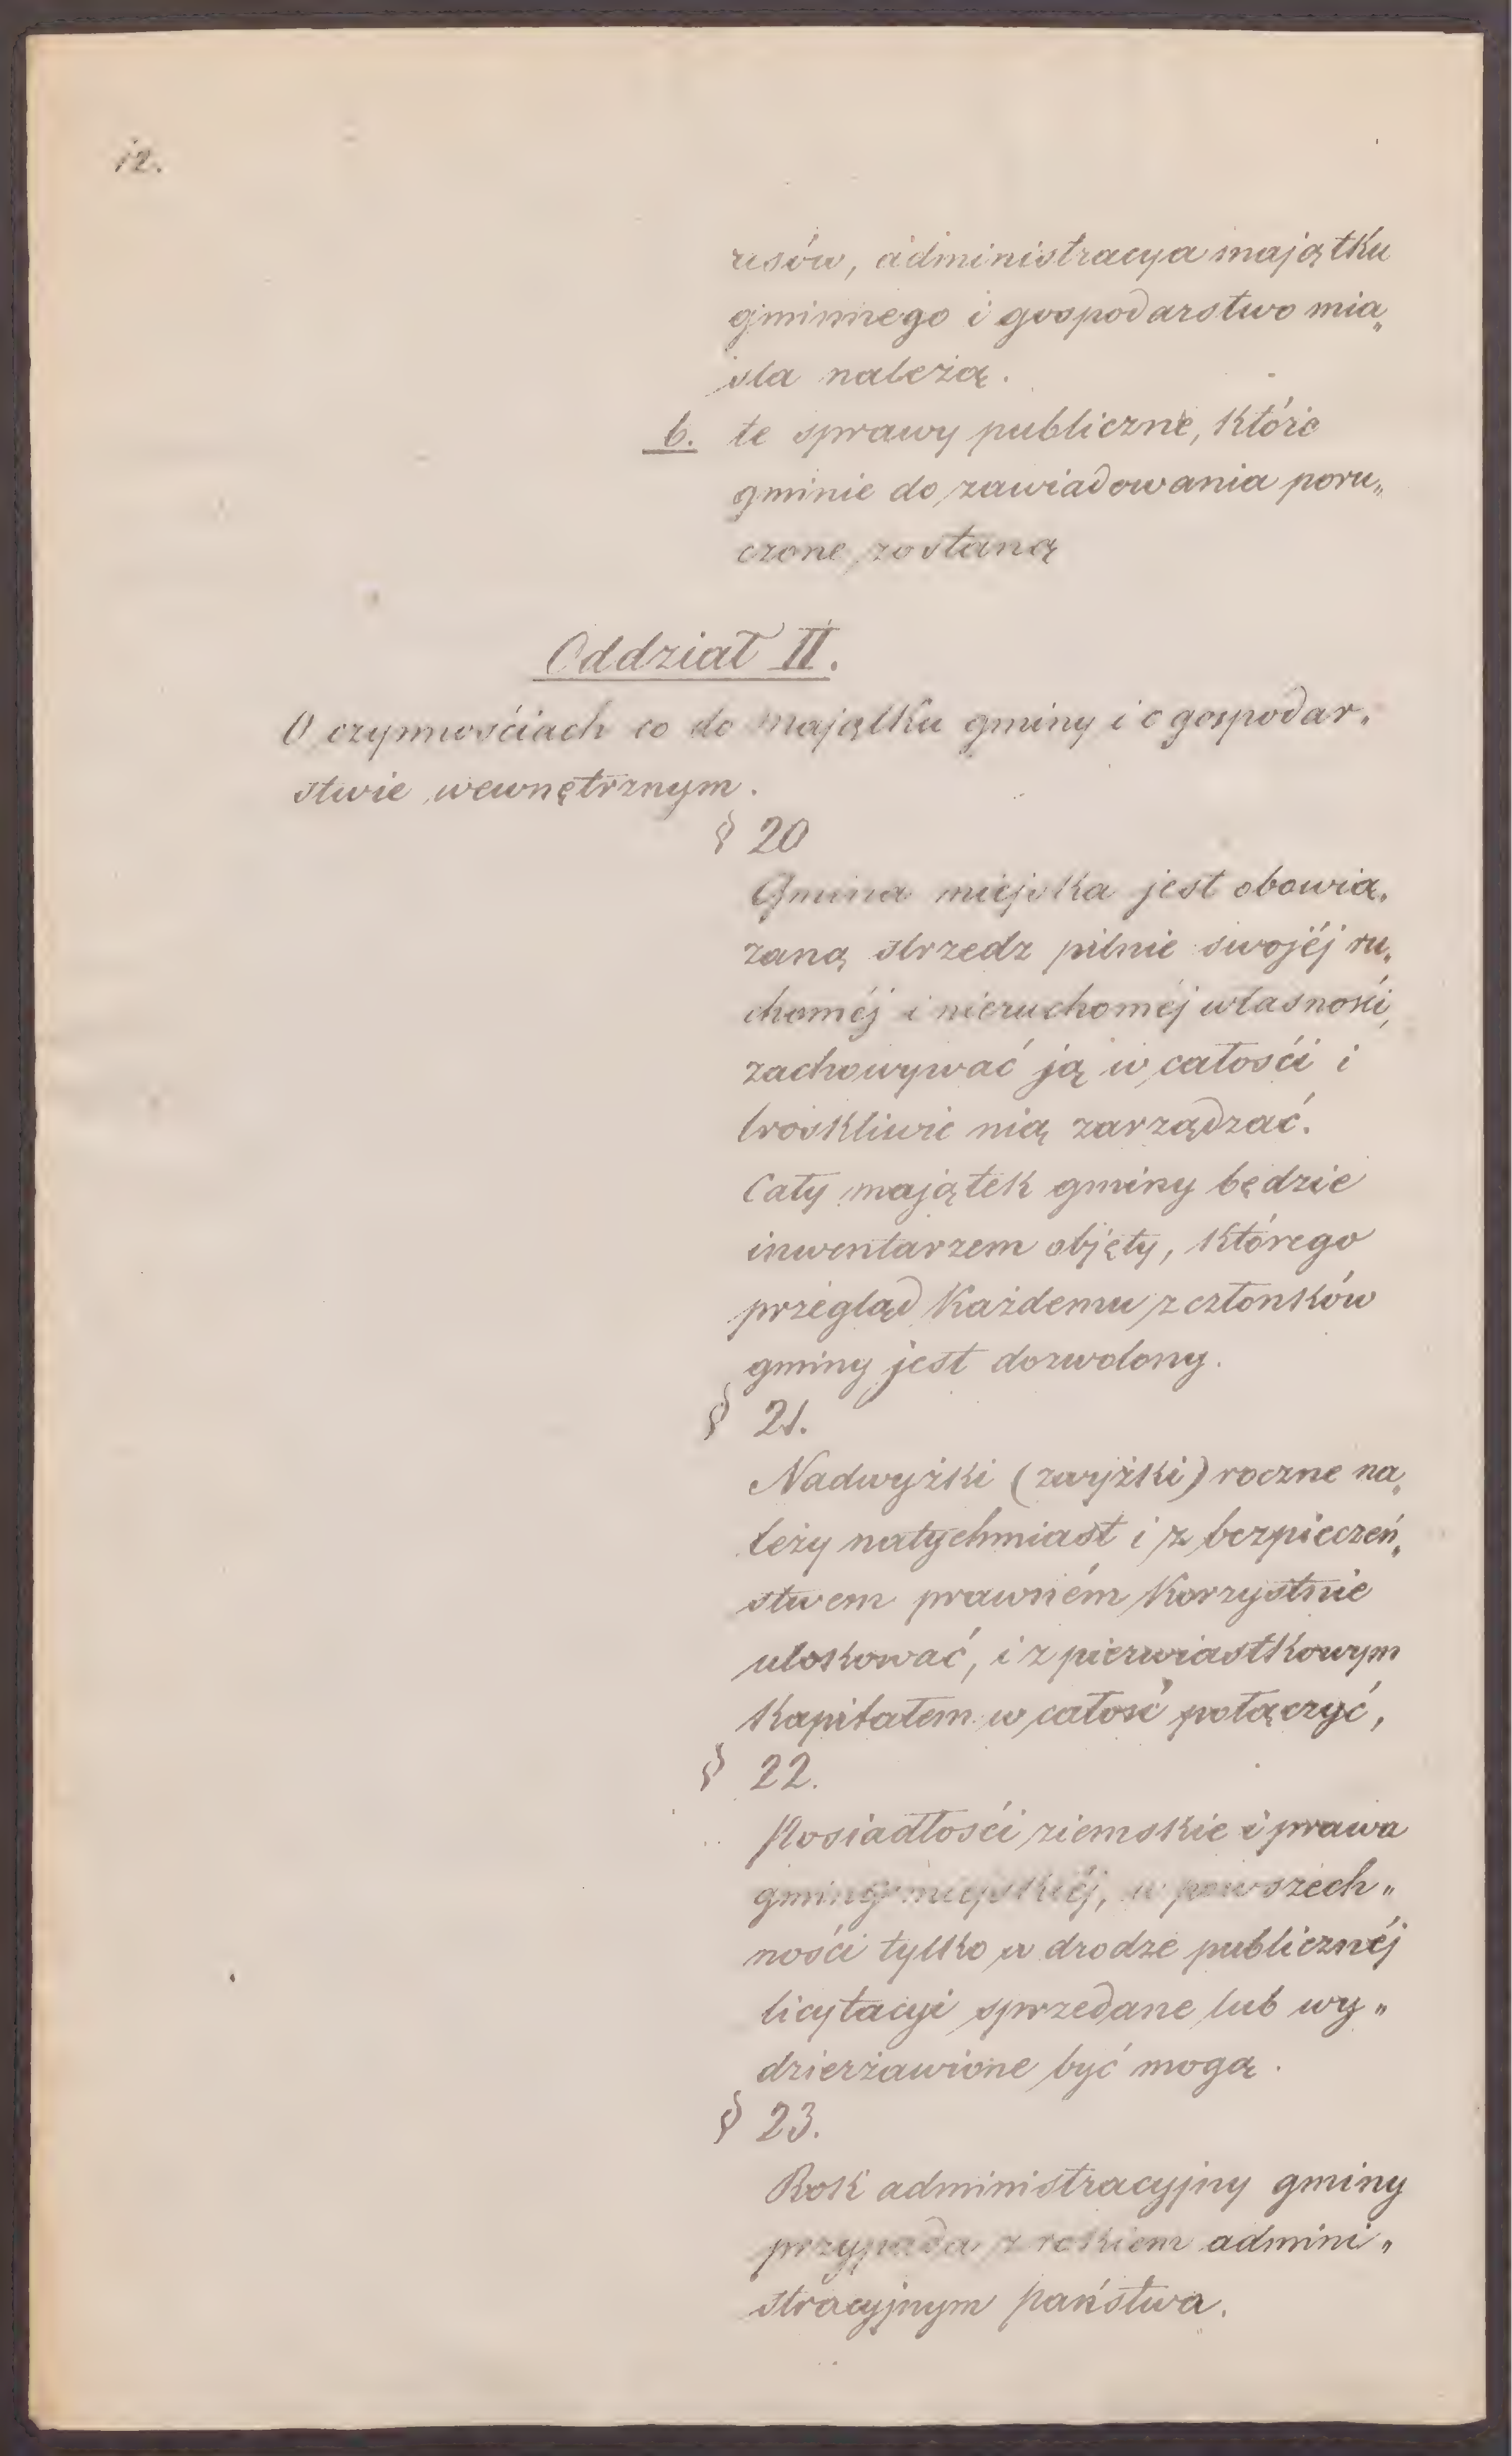 12.
resów, administracya majątku
gminnego i gospodarstwo mia„
sta należą.
b. te sprawy publiczne, które
gminie do zawiadowania poru„
czone zostaną
Oddział II.
O czynnościach co do majątku gminy i o gospodar„
stwie wewnętrznym.
§ 20
Gmina miejska jest obowią„
zaną strzedz pilnie swojéj ru„
choméj i nieruchoméj własnośći,
zachowywać ją w całośći i
troskliwie nią zarządzać.
Cały majątek gminy będzie
inwentarzem objęty, którego
przegląd każdemu z członków
gminy jest dozwolony.
§ 21.
Nadwyżki (zwyżki) roczne na„
leży natychmiast i z bezpieczeń„
stwem prawném korzystnie
ulokować, i z pierwiastkowym
kapitałem w całość połączyć,
§ 22.
Posiadłośći ziemskie i prawa
gminy miejskiéj, w powszech„
nośći tylko w drodze publicznéj
licytacyi sprzedane lub wy„
dzierżawione być mogą.
§ 23.
Rok administracyjny gminy
przypada z rokiem admini„
stracyjnym państwa.